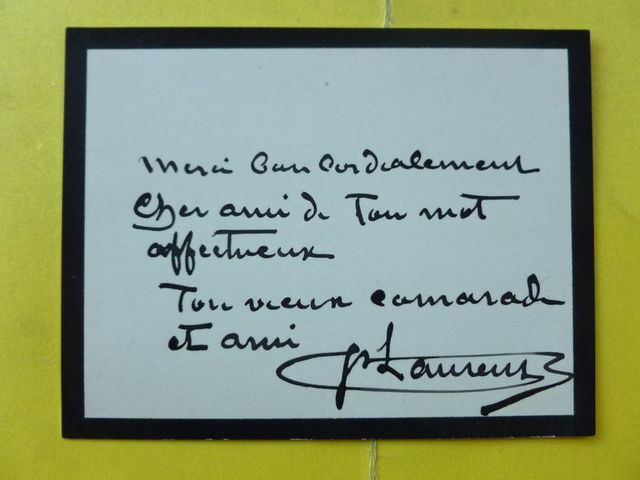 Merci bien cordialement
Cher ami de ton mot
affectueux
Ton vieux camarade
et ami
Laurens